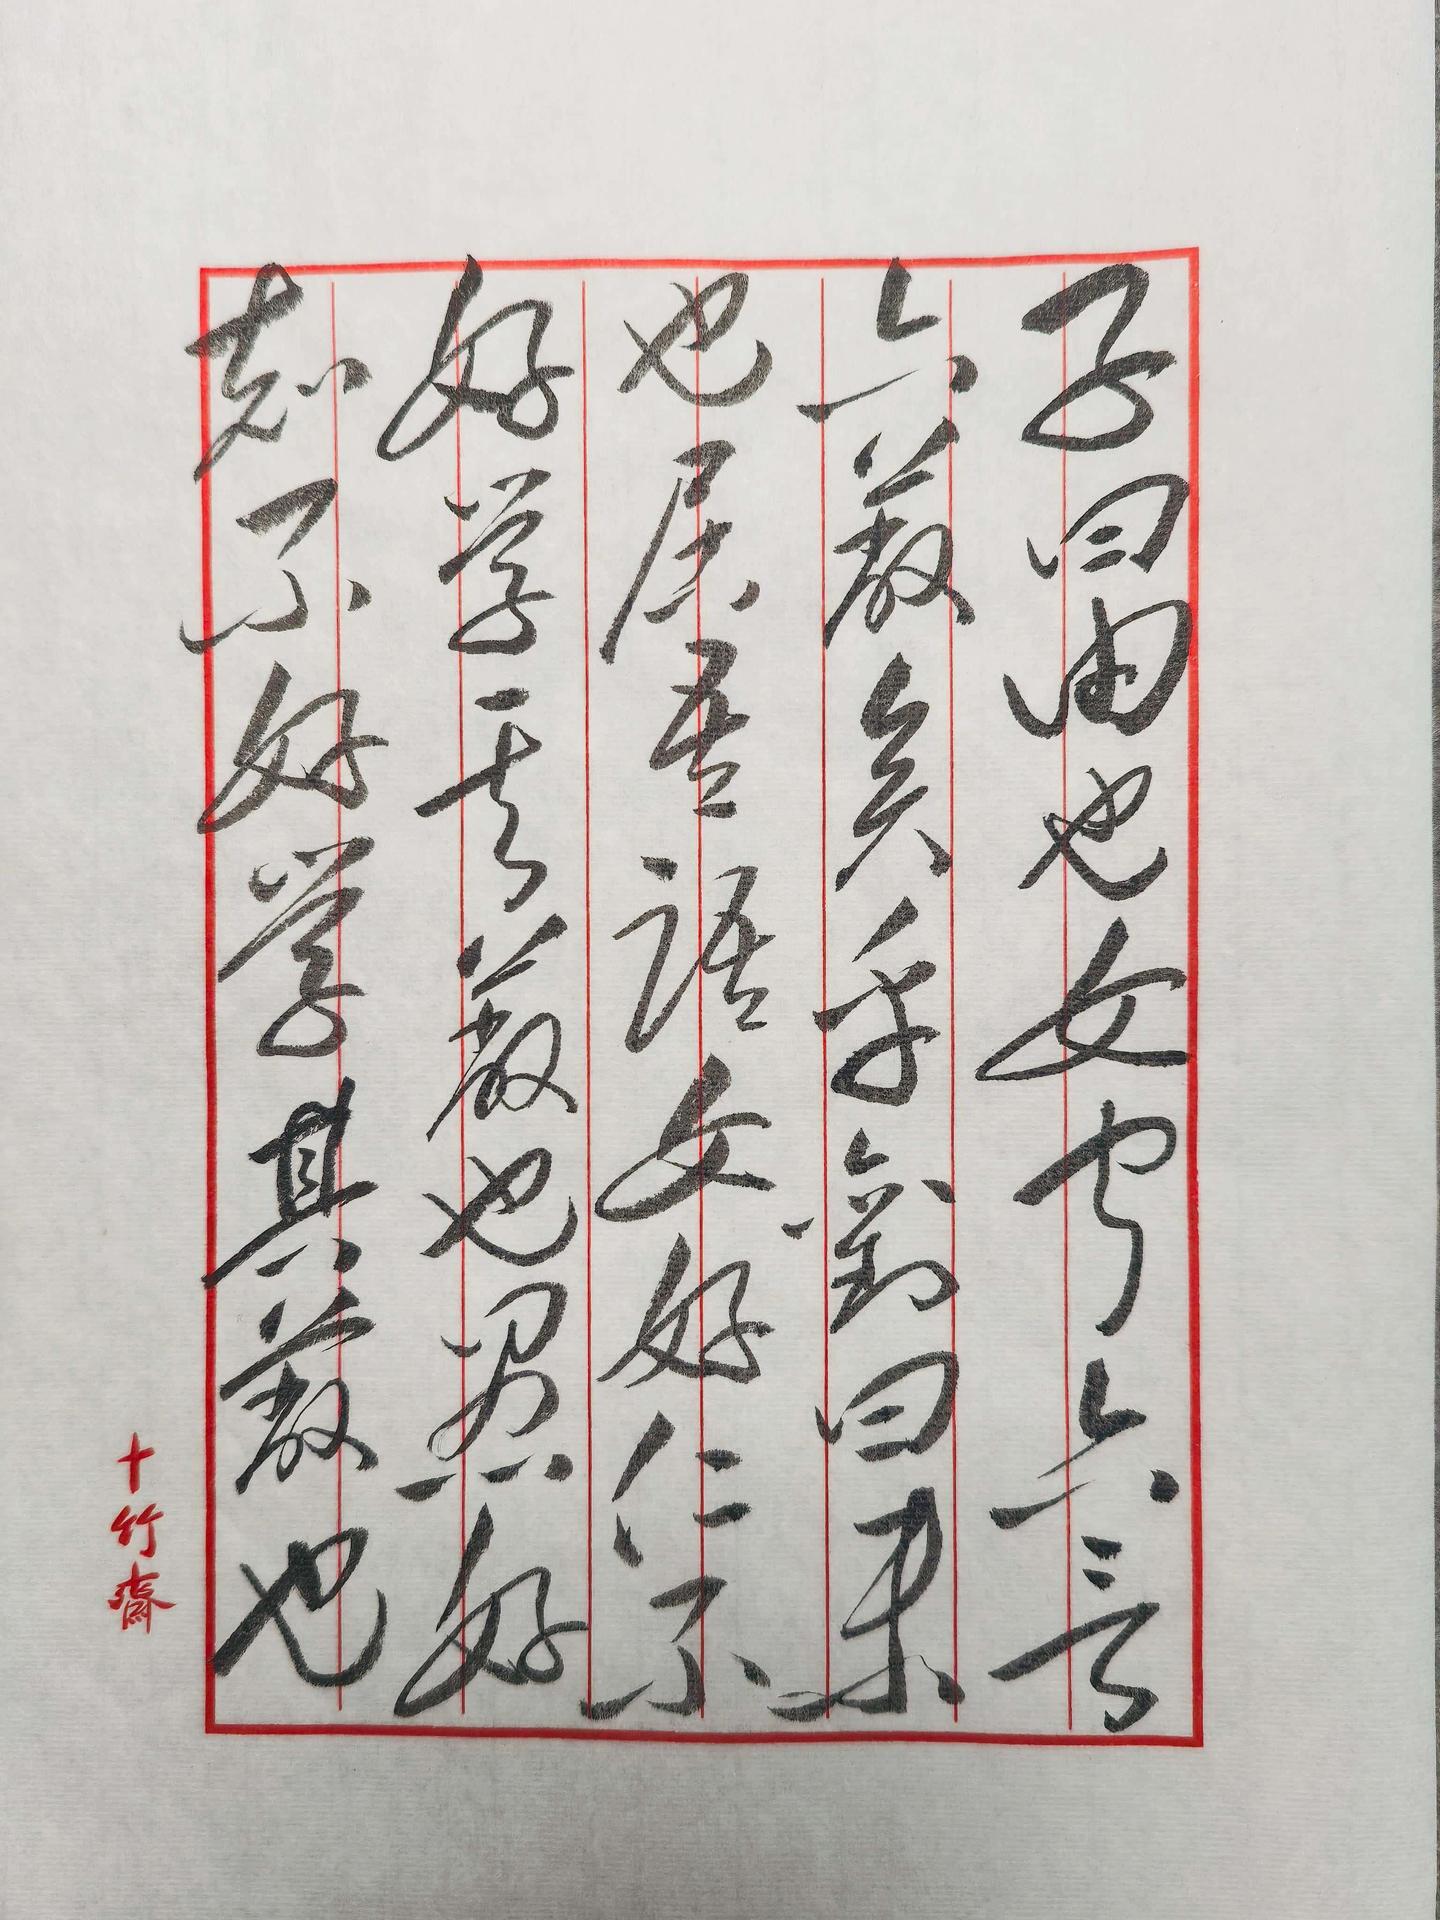 子曰由也女聞六言
六蔽矣乎對曰未
也居吾語女好仁不
好學其蔽也愚好
知不好學其蔽也
十竹齋